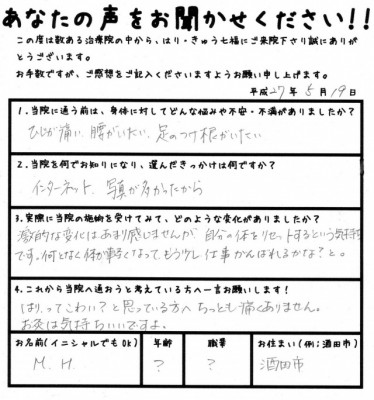 あなたの声をお聞かせください!!
この度は数ある治療院の中から、はり・きゅう七福にご来院下さり誠にありが
とうございます。
お手数ですが、ご感想をご記入くださいますようお願い申し上げます。
平成27年5月19日
1.当院に通う前は、身体に対してどんな悩みや不安・不満がありましたか?
ひじが痛い、腰がいたい、足のつけ根がいたい
2.当院を何でお知りになり、選んだきっかけは何ですか?
インターネット、写真が多かったから
3.実際に当院の施術を受けてみて、どのような変化がありましたか?
激的な変化はあまり感じませんが 自分の体をリセットするという気持ち
です。何となく体が軽くなって、もう少し仕事がんばれるかな?と。
4.これから当院へ通おうと考えている方へ一言お願いします!
はりってこわい?と思っている方へ ちっとも痛くありません。
お灸は気持ちいいですよ。
お名前(イニシャルでもOK) 年齢 職業 お住まい(例;酒田市)
M.H. ? ? 酒田市